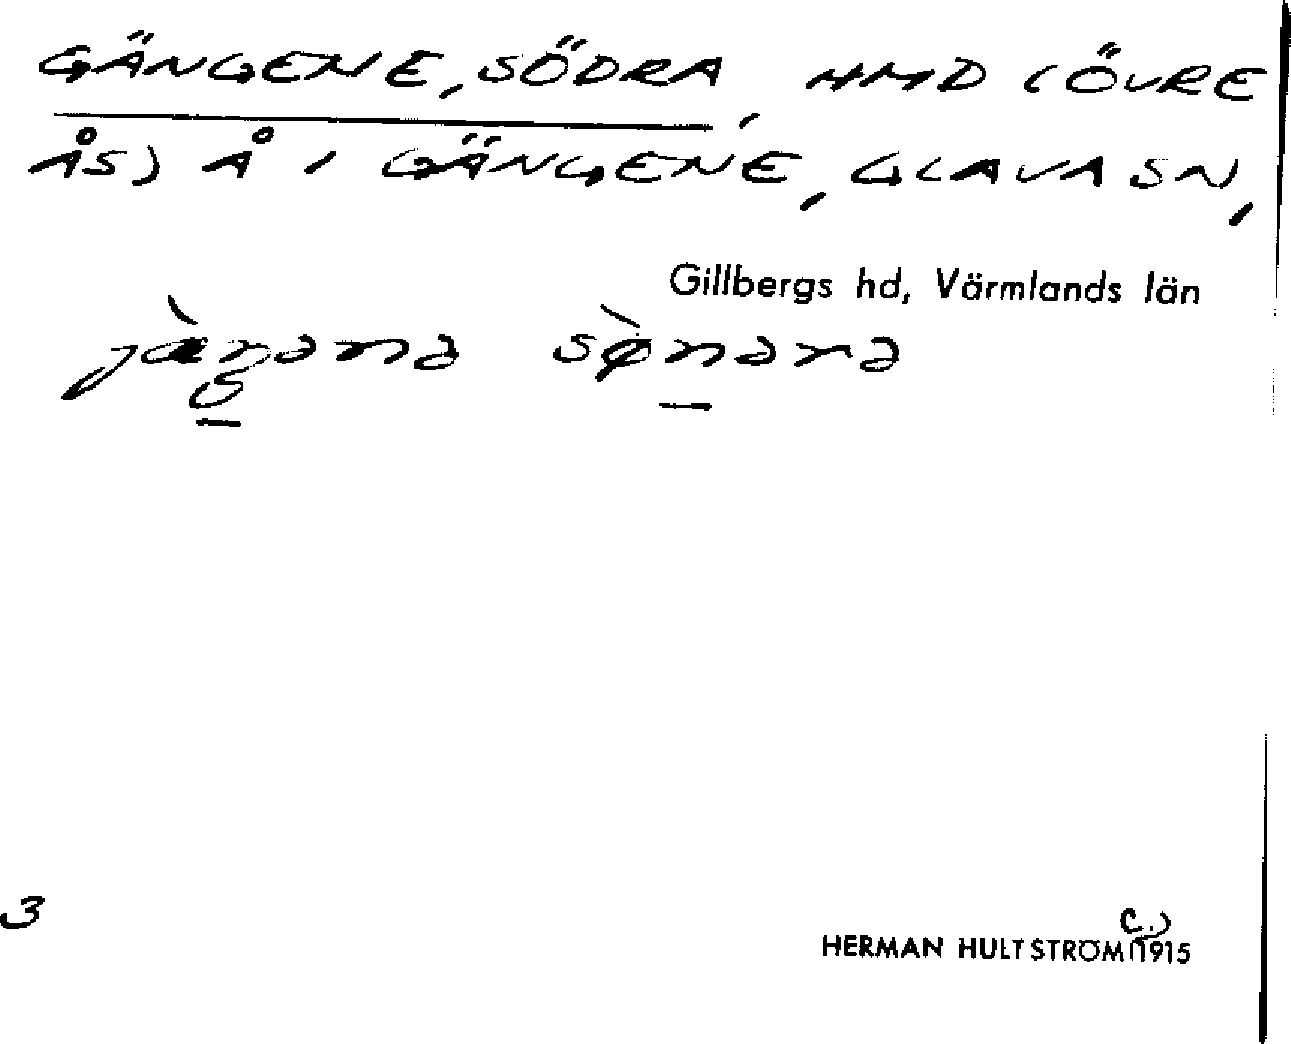 GÄNGENE, SÖDRA, HMD (ÖVRE
ÅS) Å I GÄNGENE, GLAVA SN,
Gillbergs hd, Värmlands län
jæ̀ŋənə sø̀nərə
3
HERMAN HULTSTRÖM (c.) 1915